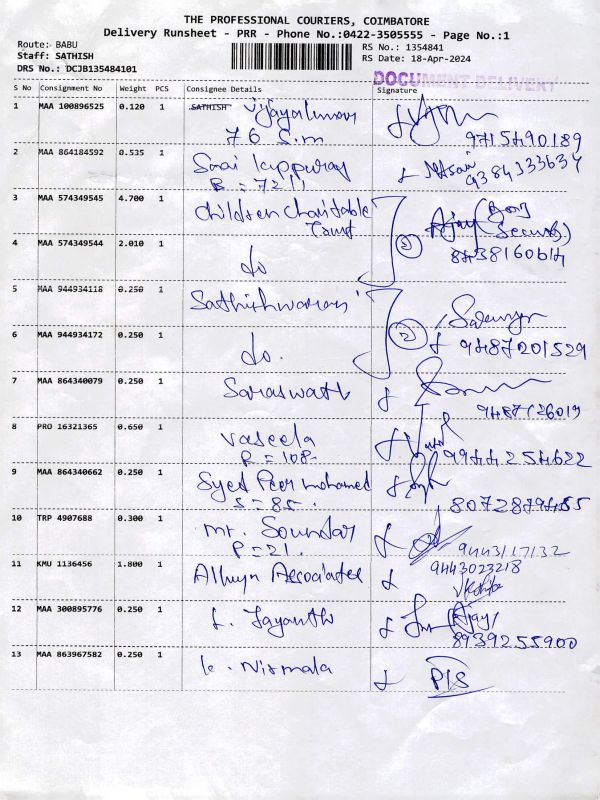 THE PROFESSIONAL COURIERS, COIMBATORE
Delivery Runsheet - PRR - Phone No.:0422-3505555 - Page No.:1
Route: BABU
RS No.: 1354841
Staff: SATHISH
RS Date: 18-Apr-2024
DRS No.: DCJB135484101
DOCUMENT DELIVERY
S No Consignment No Weight PCS Consignee Details Signature
1 MAA 100896525 0.120 1 SATHISH
76 S.m 9715490189
2 MAA 864184592 0.535 1 Sarai kuppuray
B = 7211 9384333634
3 MAA 574349545 4.700 1 Children Charitable
Trust Ajay
4 MAA 574349544 2.010 1 do 2 8438160614
5 MAA 944934118 0.250 1 Sathishwaran
6 MAA 944934172 0.250 1 do. 2 9487201529
7 MAA 864340079 0.250 1 Saraswathi
9487126019
8 PRO 16321365 0.650 1 Vaseela
P = 108- 9944254622
9 MAA 864340662 0.250 1 Syed Peer mohamed
S = 85. 8072879455
10 TRP 4907688 0.300 1 mr. Soundar
P = 21. 9443117132
11 KMU 1136456 1.800 1 Allwyn Associates 9443023218
12 MAA 300895776 0.250 1 L. Jayanthi Ajay
8939255900
13 MAA 863967582 0.250 1 k. Nirmala P/S